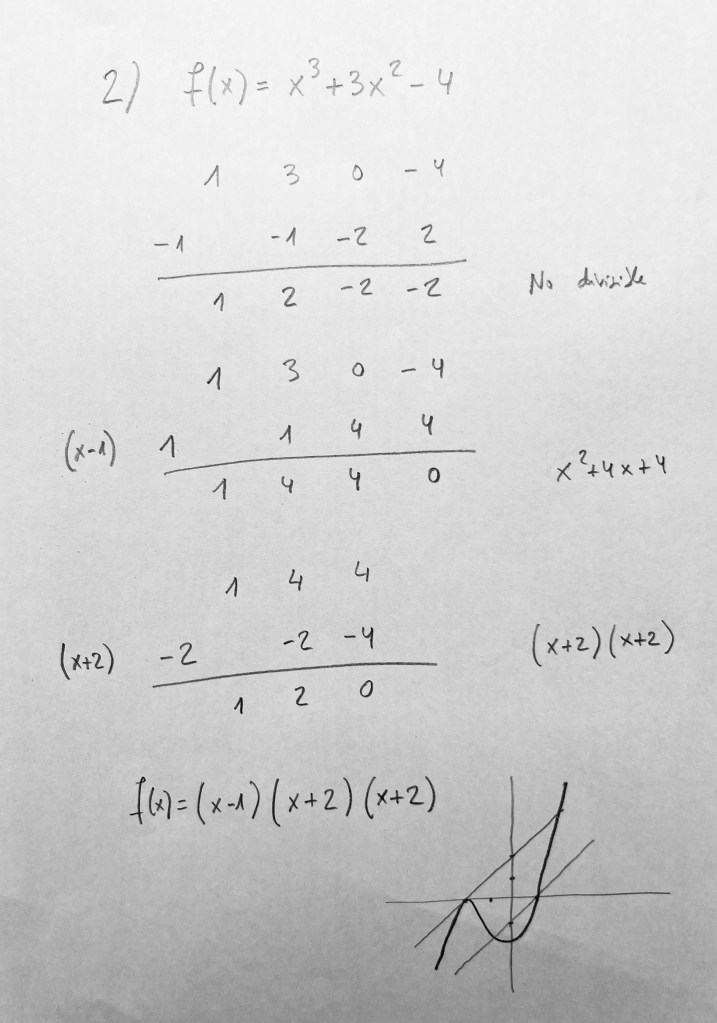 2) f(x) = x³ + 3x² - 4
1 3 0 -4
-1 -1 -2 2
1 2 -2 -2 No divisible
1 3 0 -4
(x-1) 1 1 4 4
1 4 4 0 x²+4x+4
1 4 4
(x+2) -2 -2 -4 (x+2)(x+2)
1 2 0
f(x) = (x-1)(x+2)(x+2)